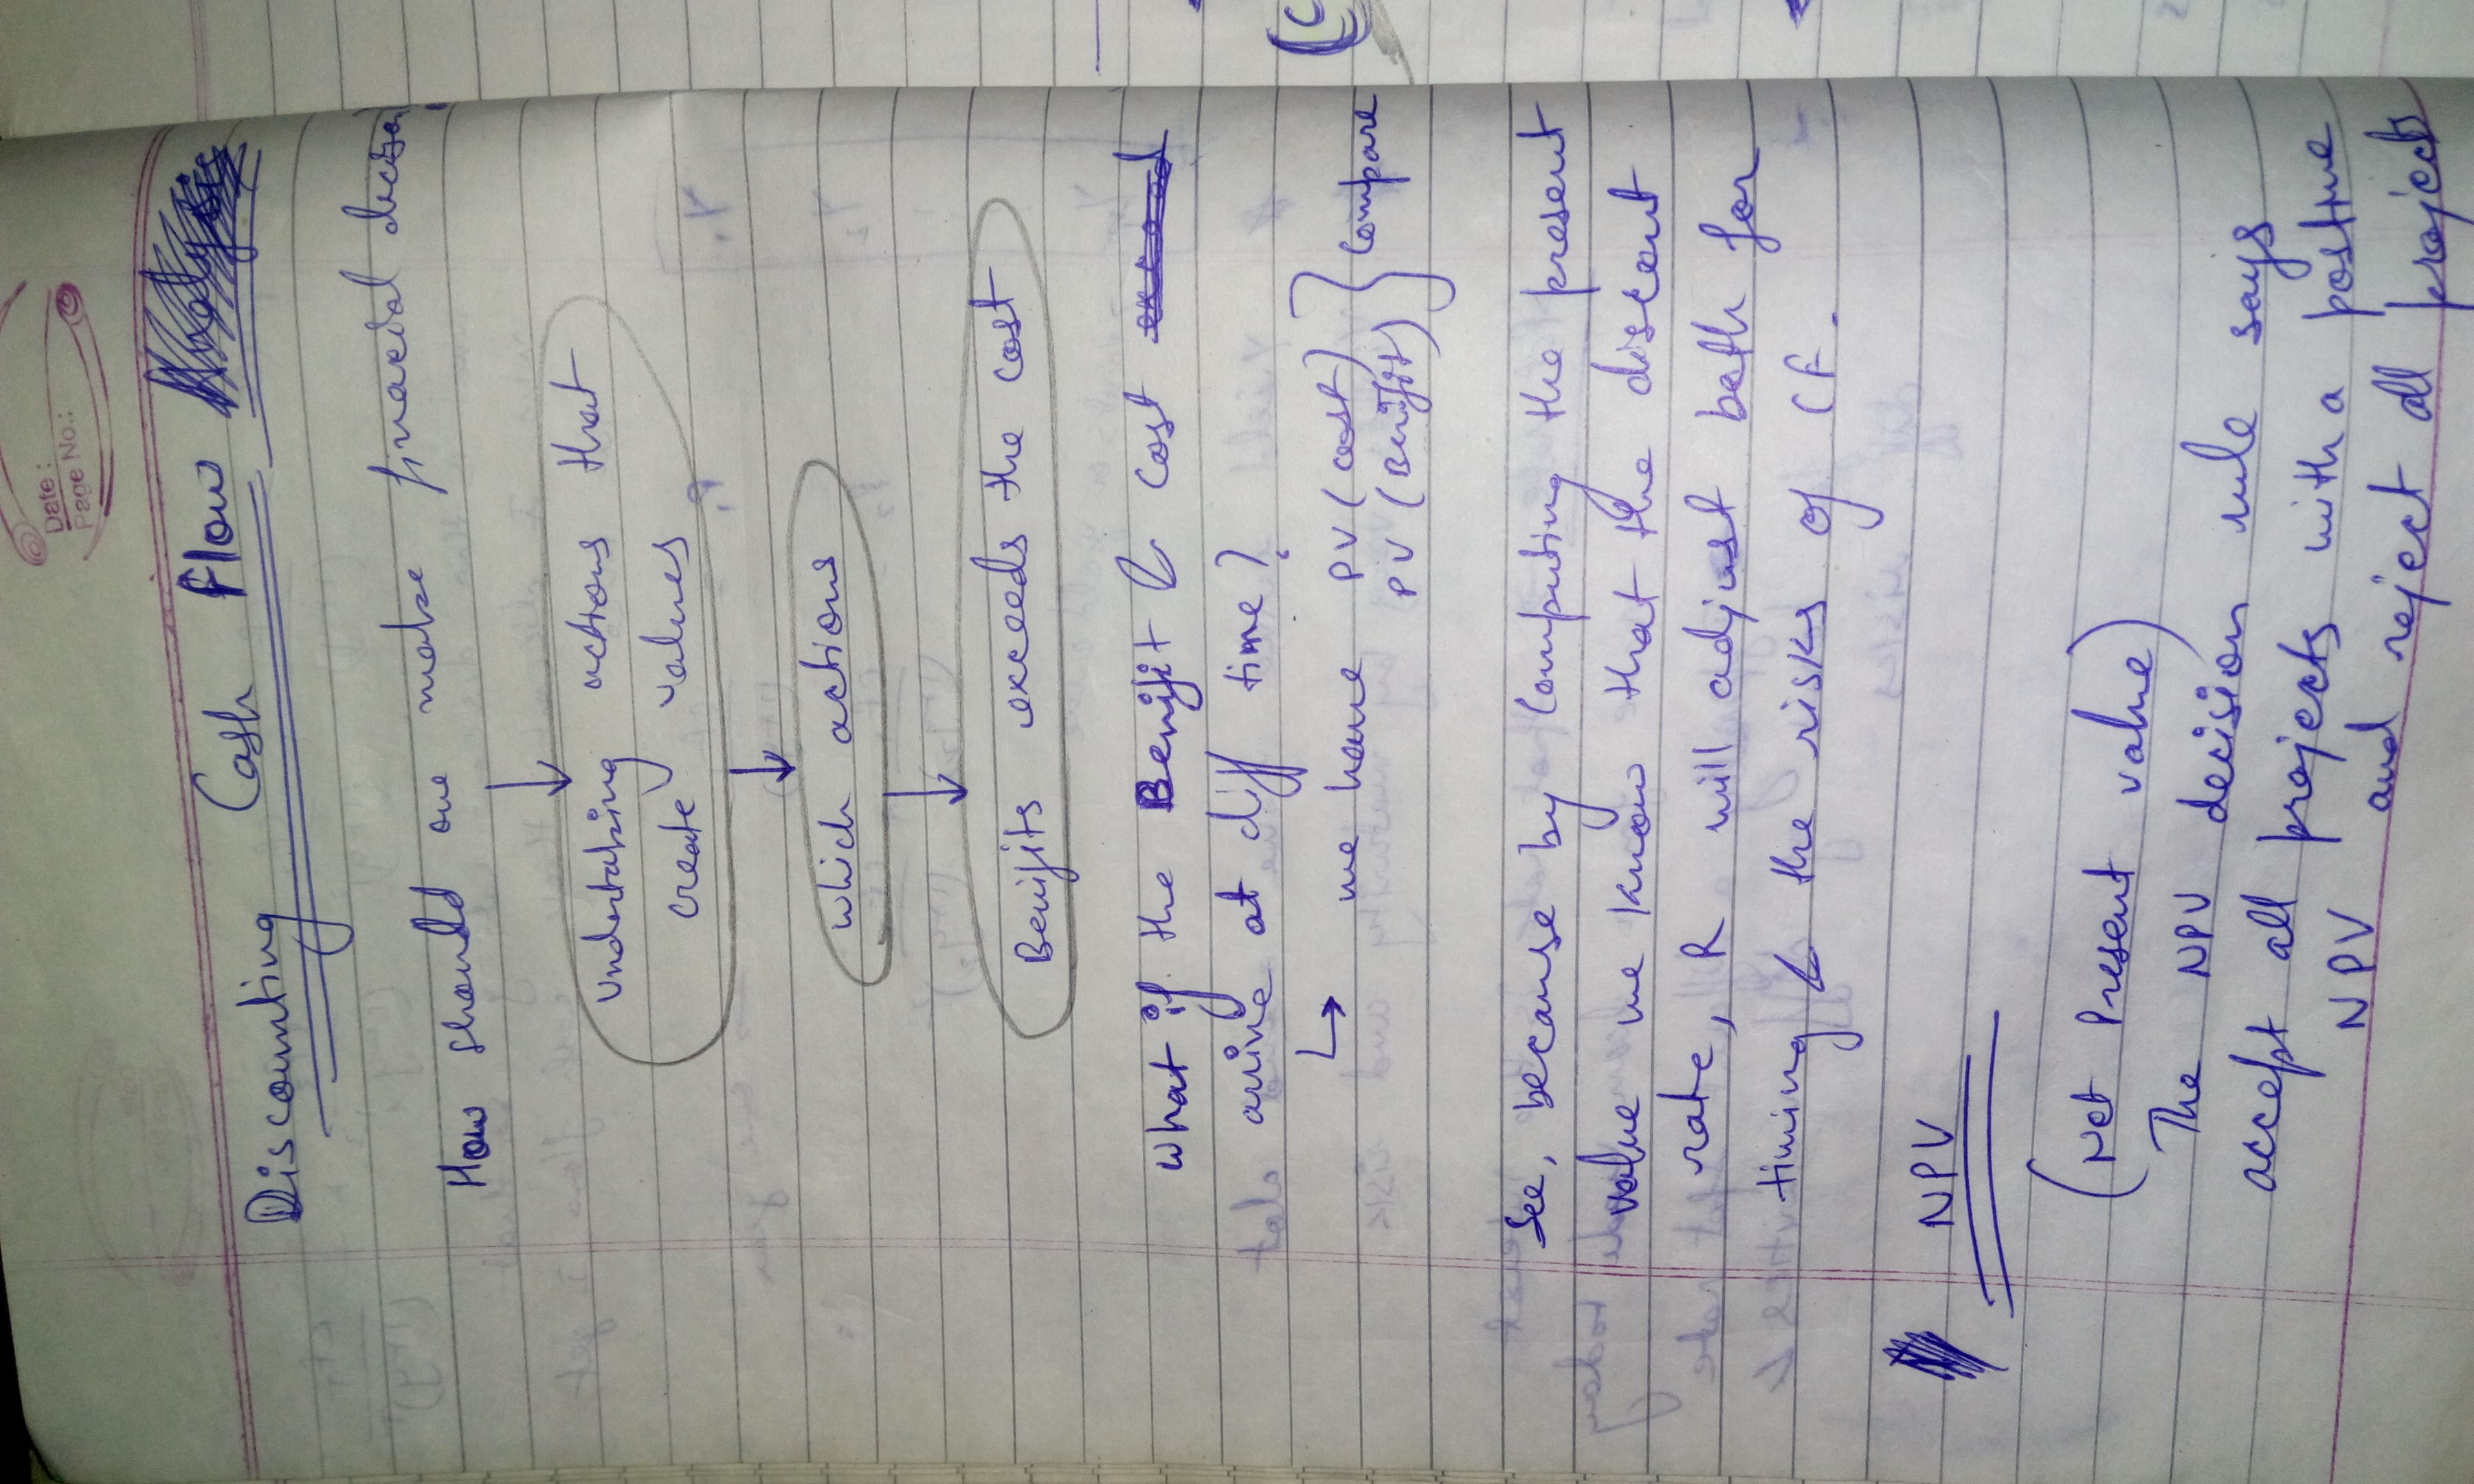 Date:
Page No.:
Discounting Cash Flow
How should one make financial decison
↓
Undertaking actions that
create values
↓
which actions
↓
Benifits exceeds the cost
What if the Benifit & Cost
arrive at diff time?
↳ we have PV (cost)
PV (Benifit) } Compare
See, because by Computing the present
value we know that the discount
rate, R will adjust both for
timing & the risks of CF.
NPV
(Net Present value)
The NPV decision rule says
accept all projects with a postive
NPV and reject all projects